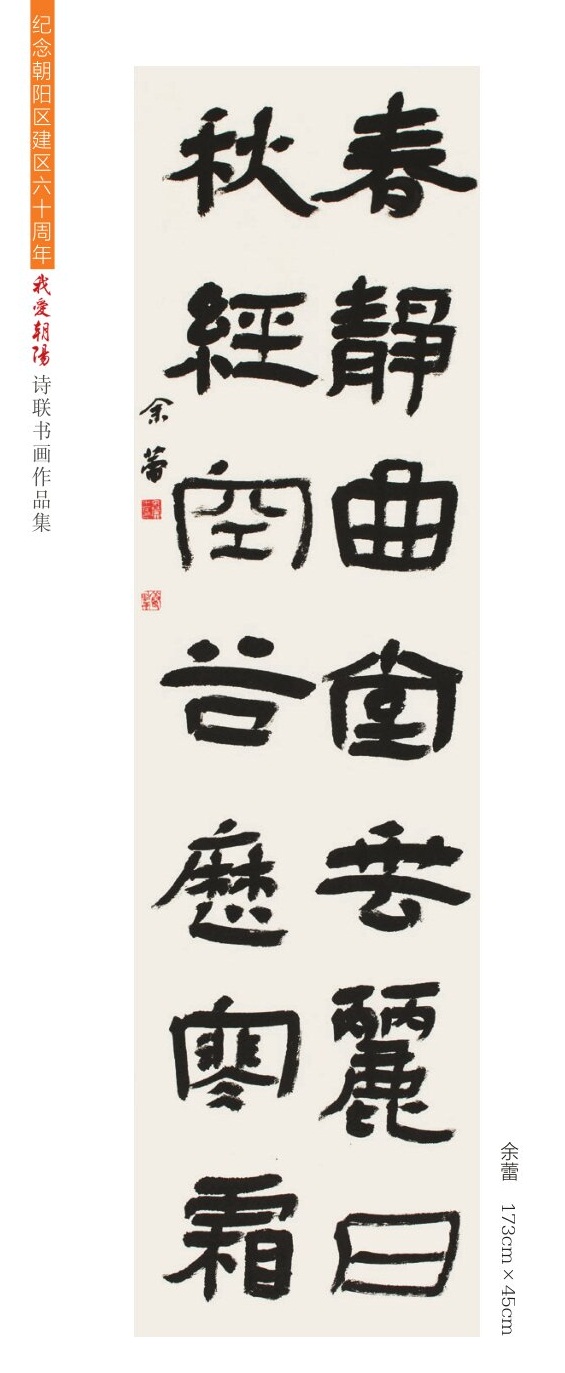 纪念朝阳区建区六十周年
我爱朝陽
诗联书画作品集
春靜曲堂麗日
秋經空谷歷寒霜
余蕾
余蕾 173cm×45cm